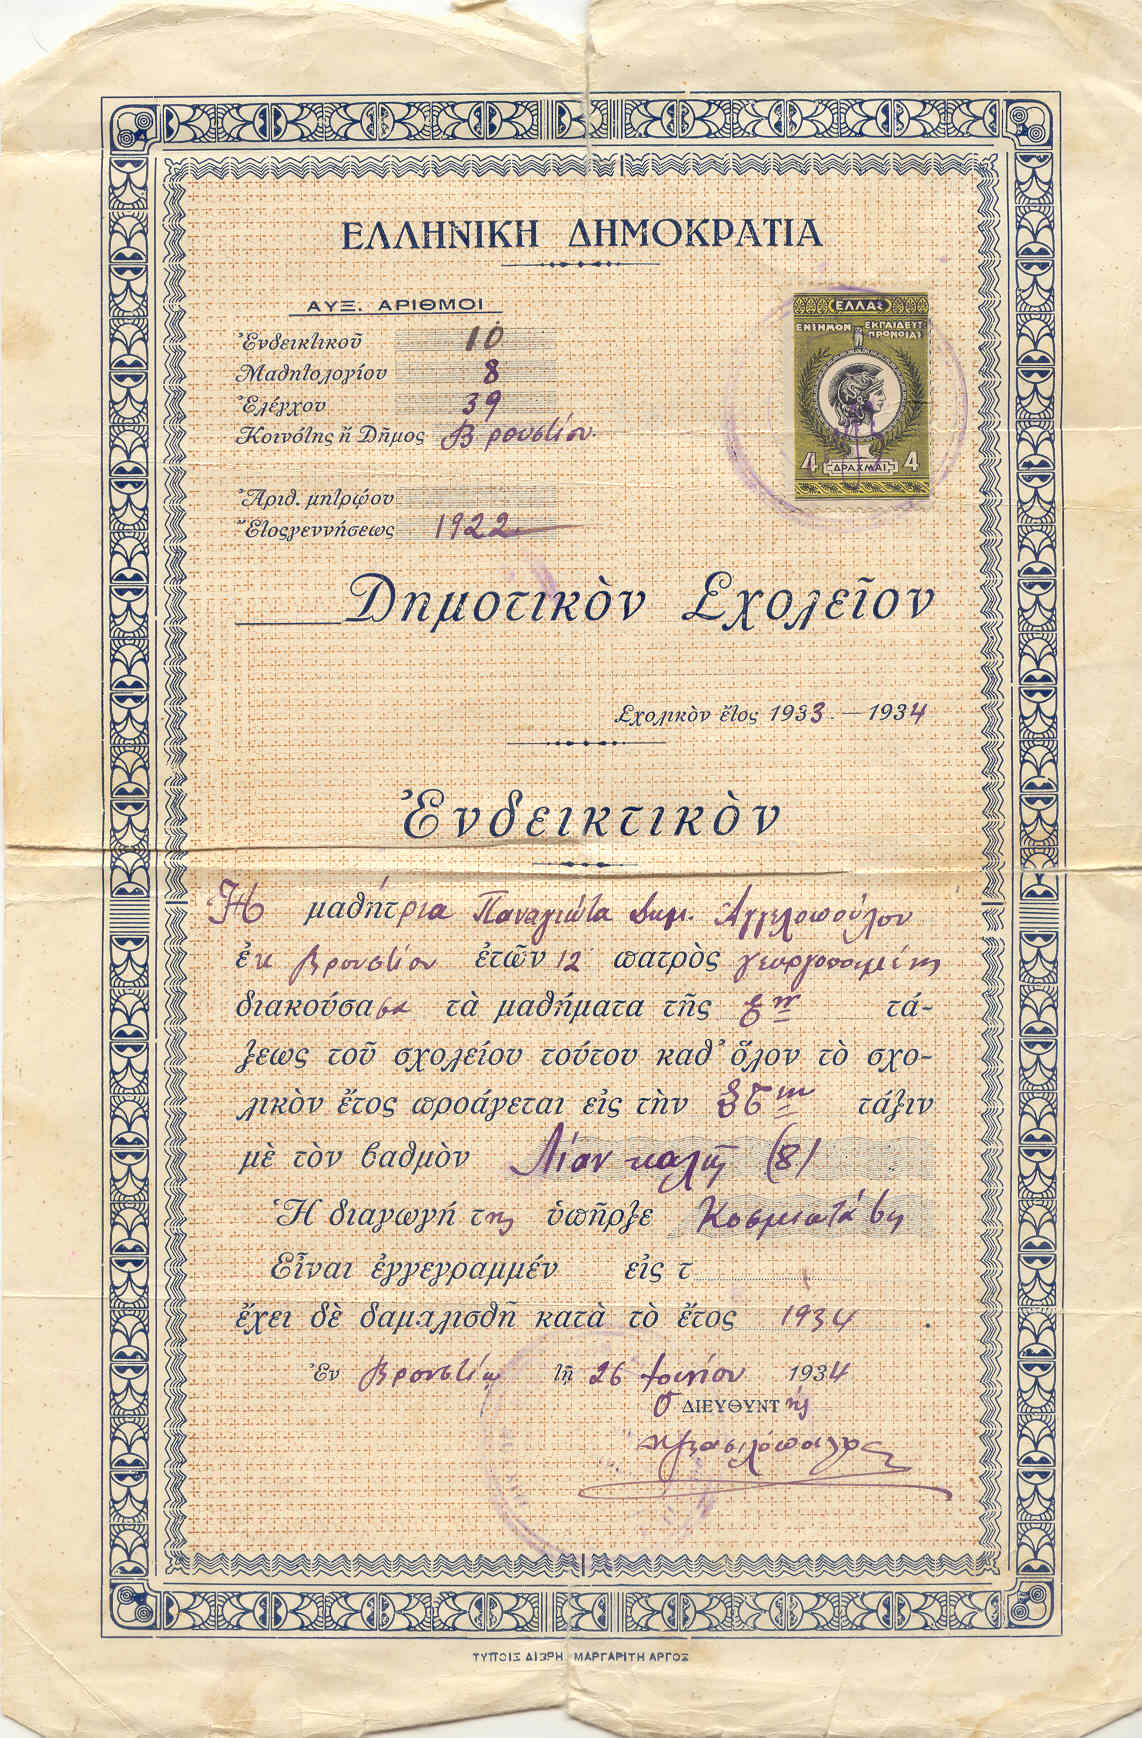 ΕΛΛΗΝΙΚΗ ΔΗΜΟΚΡΑΤΙΑ
ΑΥΞ. ΑΡΙΘΜΟΙ
Ἐνδεικτικοῦ 10
Μαθητολογίου 8
Ἐλέγχου 39
Κοινότης ἢ Δῆμος Βρουστίου.
Ἀριθ. μητρῴου
Ἔτος γεννήσεως 1922
ΕΛΛΑΣ
ΕΝΣΗΜΟΝ ΕΚΠΑΙΔΕΥΤ
ΠΡΟΝΟΙΑΣ
4 ΔΡΑΧΜΑΙ 4
Δημοτικὸν Σχολεῖον
Σχολικὸν ἔτος 1933.—1934
Ἐνδεικτικὸν
Ἡ μαθήτρια Παναγιώτα Δημ. Ἀγγελοπούλου
ἐκ Βρουστίου ἐτῶν 12 πατρὸς γεωργοποιμένος
διακούσασα τὰ μαθήματα τῆς Εης τά-
ξεως τοῦ σχολείου τούτου καθ' ὅλον τὸ σχο-
λικὸν ἔτος προάγεται εἰς τὴν ΣΤην τάξιν
μὲ τὸν βαθμὸν Λίαν καλῶς (8)
Ἡ διαγωγή της ὑπῆρξε Κοσμιωτάτη
Εἶναι ἐγγεγραμμέν εἰς τ
ἔχει δὲ δαμαλισθῆ κατὰ τὸ ἔτος 1934.
Ἐν Βρουστίῳ τῇ 26 Ἰουνίου 1934
Ὁ ΔΙΕΥΘΥΝΤής
ΤΥΠΟΙΣ ΔΙΒΡΗ ΜΑΡΓΑΡΙΤΗ ΑΡΓΟΣ